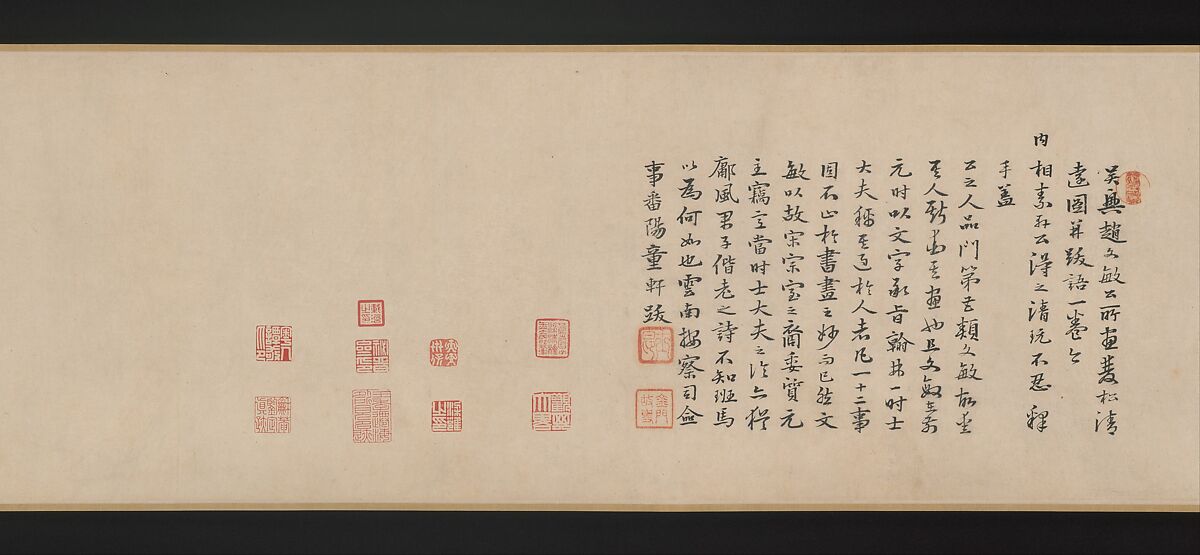 吳興趙文敏公所畫雙松清
遠圖并跋語一卷今
內相素菴公得之清玩不忍釋
手蓋
公之人品門第甚類文敏故愛
其人斯愛其畫也且文敏在前
元時以文字承旨翰林一時士
大夫稱其過於人者凡一十二事
固不止於書畫之妙而已然文
敏以故宋宗室之裔委質元
主竊意當時士大夫之論亦猶
鄘風君子偕老之詩不知班馬
以為何如也雲南按察司僉
事番陽童軒跋